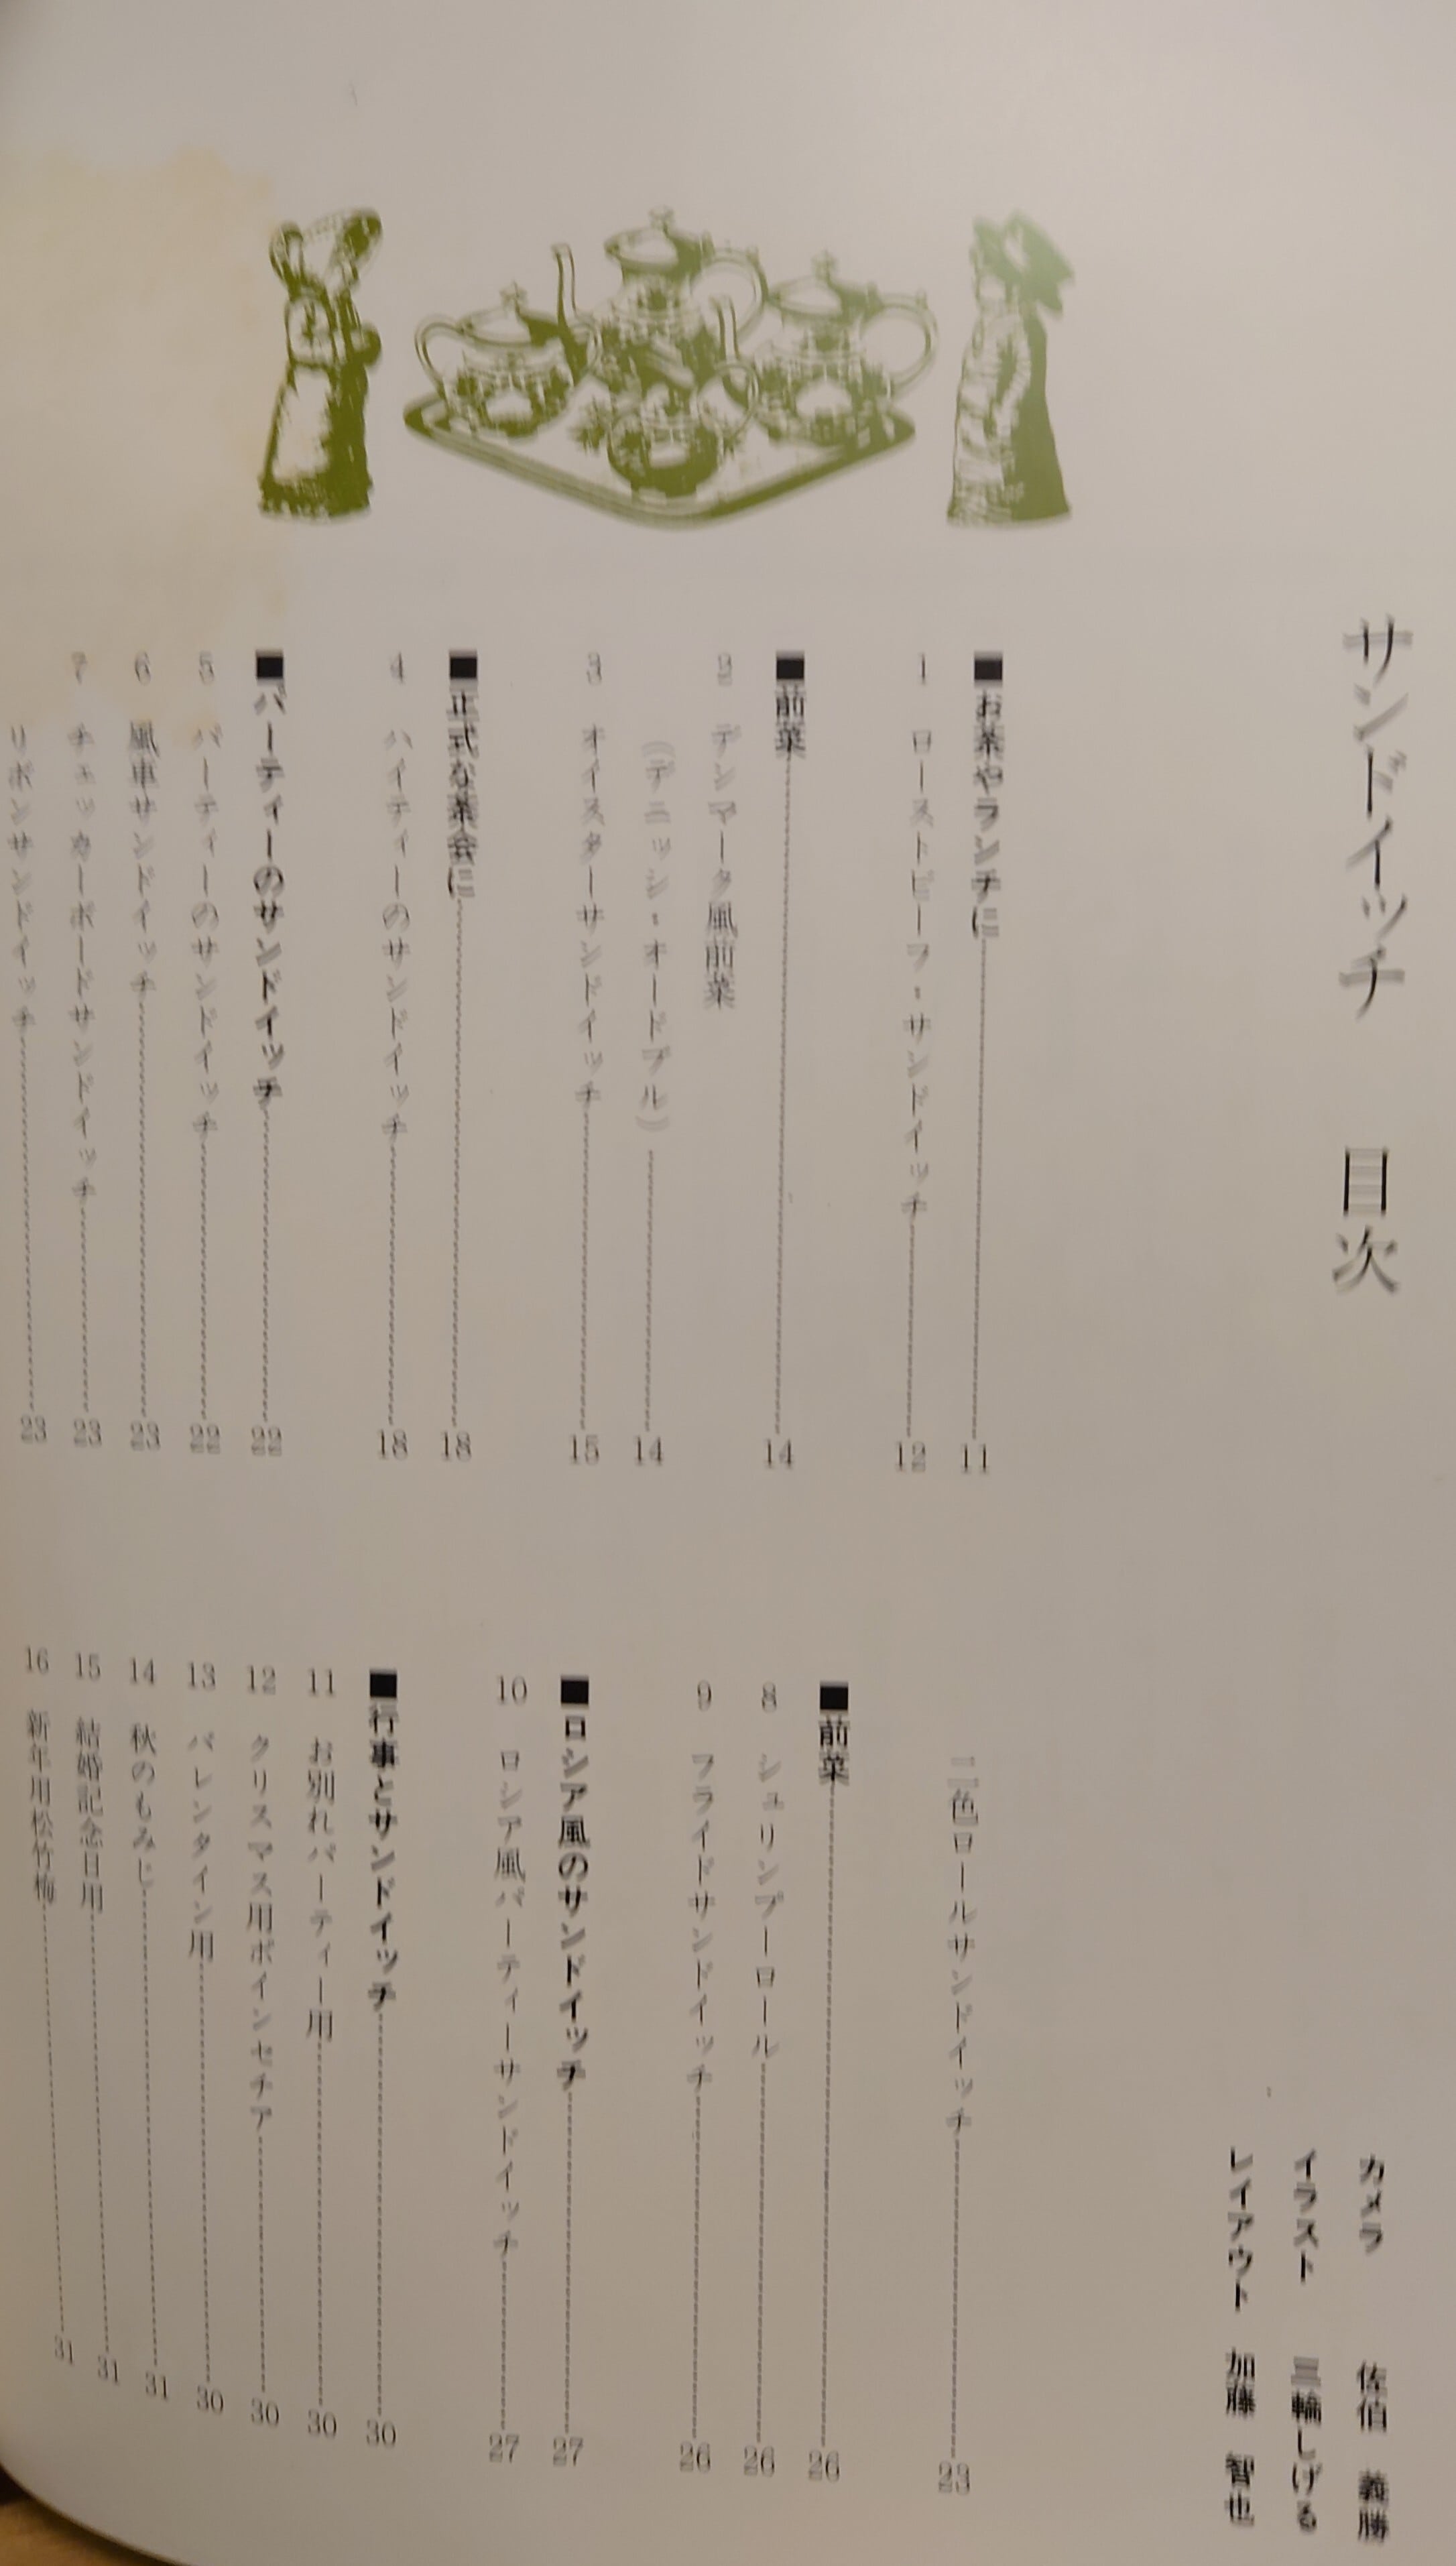 サンドイッチ 目次
カメラ 佐伯 義勝
イラスト 三輪しげる
レイアウト 加藤 智也
■お茶やランチに 11
1 ローストビーフ・サンドイッチ 12
■前菜 14
2 デンマーク風前菜
(デニッシ・オードブル) 14
3 オイスターサンドイッチ 15
■正式な茶会に 18
4 ハイティーのサンドイッチ 18
■パーティーのサンドイッチ 22
5 パーティーのサンドイッチ 22
6 風車サンドイッチ 23
7 チェッカーボードサンドイッチ 23
リボンサンドイッチ 23
二色ロールサンドイッチ 23
■前菜 26
8 シュリンプーロール 26
9 フライドサンドイッチ 26
■ロシア風のサンドイッチ 27
10 ロシア風パーティーサンドイッチ 27
■行事とサンドイッチ 30
11 お別れパーティー用 30
12 クリスマス用ポインセチア 30
13 バレンタイン用 30
14 秋のもみじ 31
15 結婚記念日用 31
16 新年用松竹梅 31